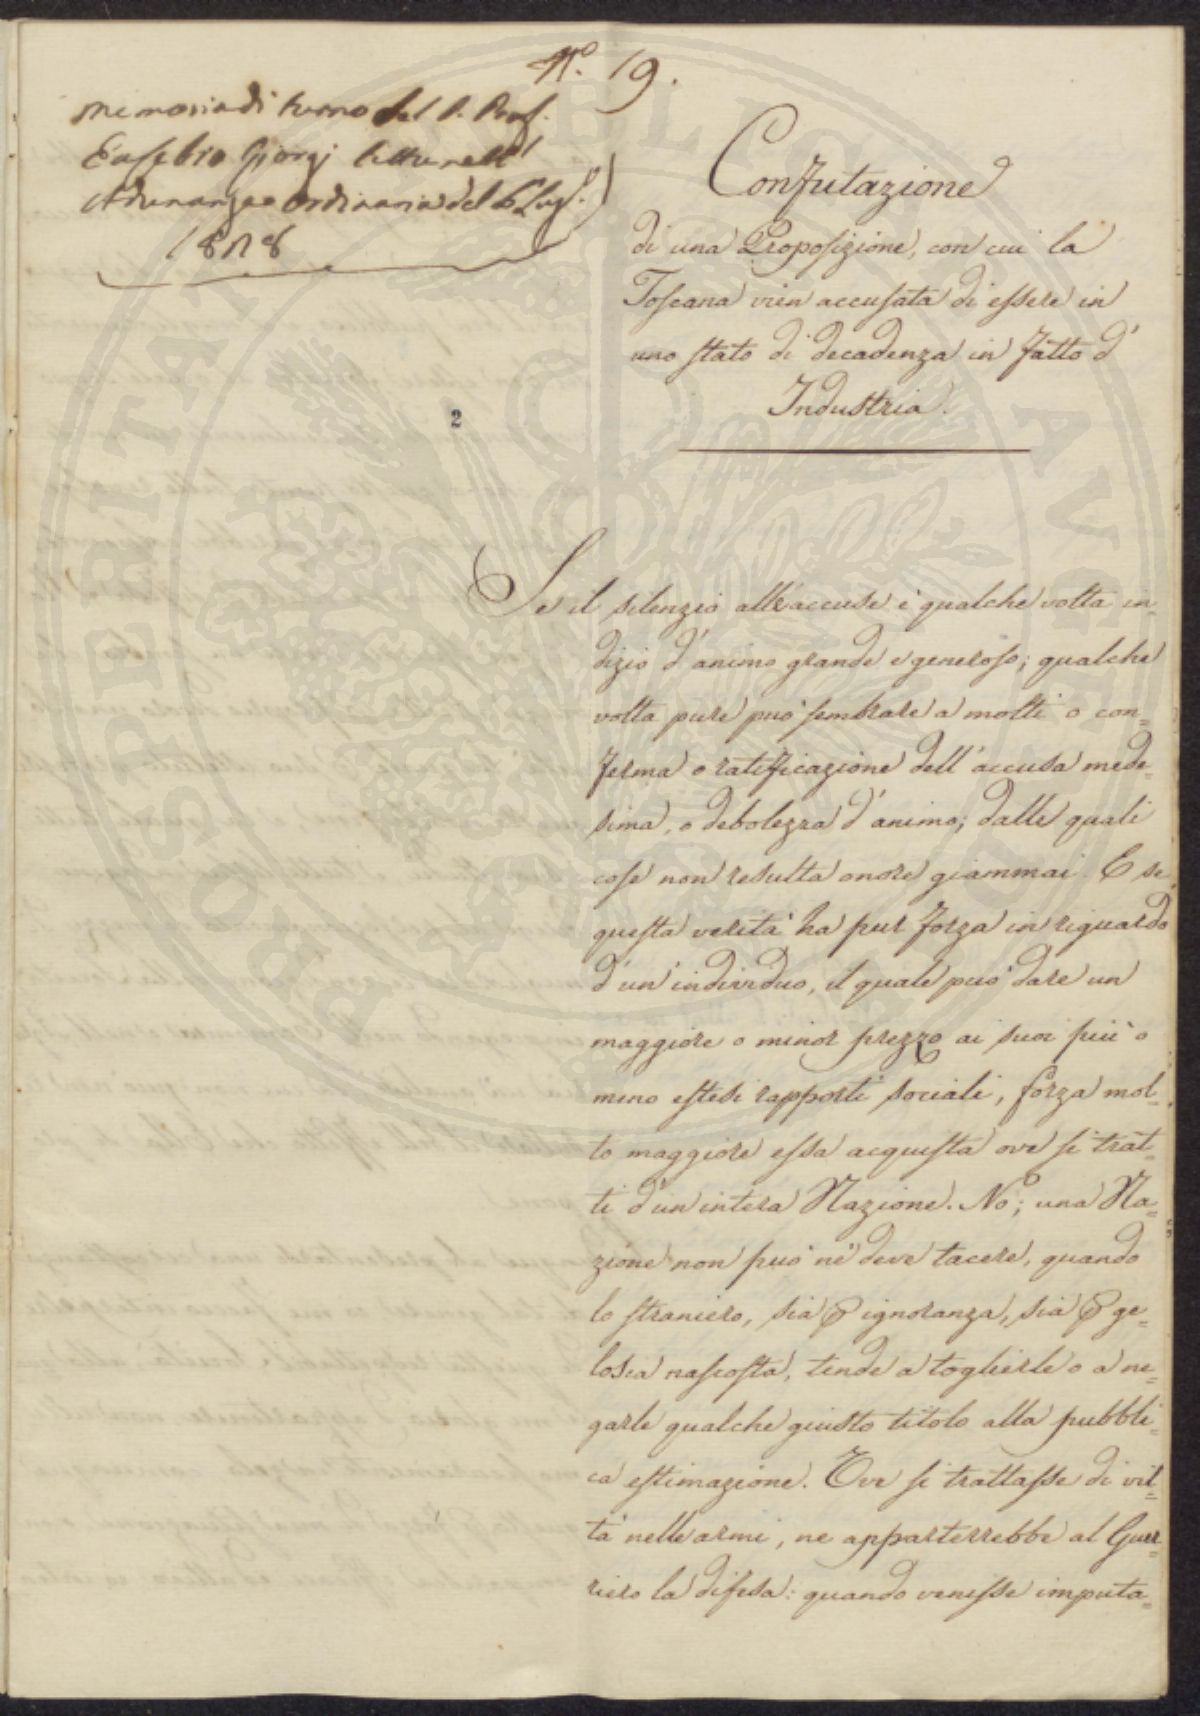 N.° 19.
Memoria di turno del P. Prof.
Eusebio Giorgi letta nell'
Adunanza ordinaria del 6 Lug.°
1818
Confutazione
di una Proposizione, con cui la
Toscana vien accusata di essere in
uno stato di decadenza in fatto d'
Industria.
2
Se il silenzio all'accuse è qualche volta in-
dizio d'animo grande e generoso; qualche
volta pure può sembrare a molti o con=
ferma o ratificazione dell'accusa mede=
sima, o debolezza d'animo; dalle quali
cose non resulta onore giammai. E se
questa verità ha pur forza in riguardo
d'un individuo, il quale può dare un
maggiore o minor prezzo ai suoi più o
meno estesi rapporti sociali, forza mol=
to maggiore essa acquista ove si trat=
ti d'un intera Nazione. No; una Na=
zione non può nè deve tacere, quando
lo straniero, sia p ignoranza, sia p ge=
losia nascosta, tende a toglierle o a ne=
garle qualche giusto titolo alla pubbli=
ca estimazione. Ove si trattasse di vil=
tà nelle armi, ne apparterrebbe al Guer=
riero la difesa: quando venisse imputa=
PROSPERITATI PUBLICAE AUGENDAE